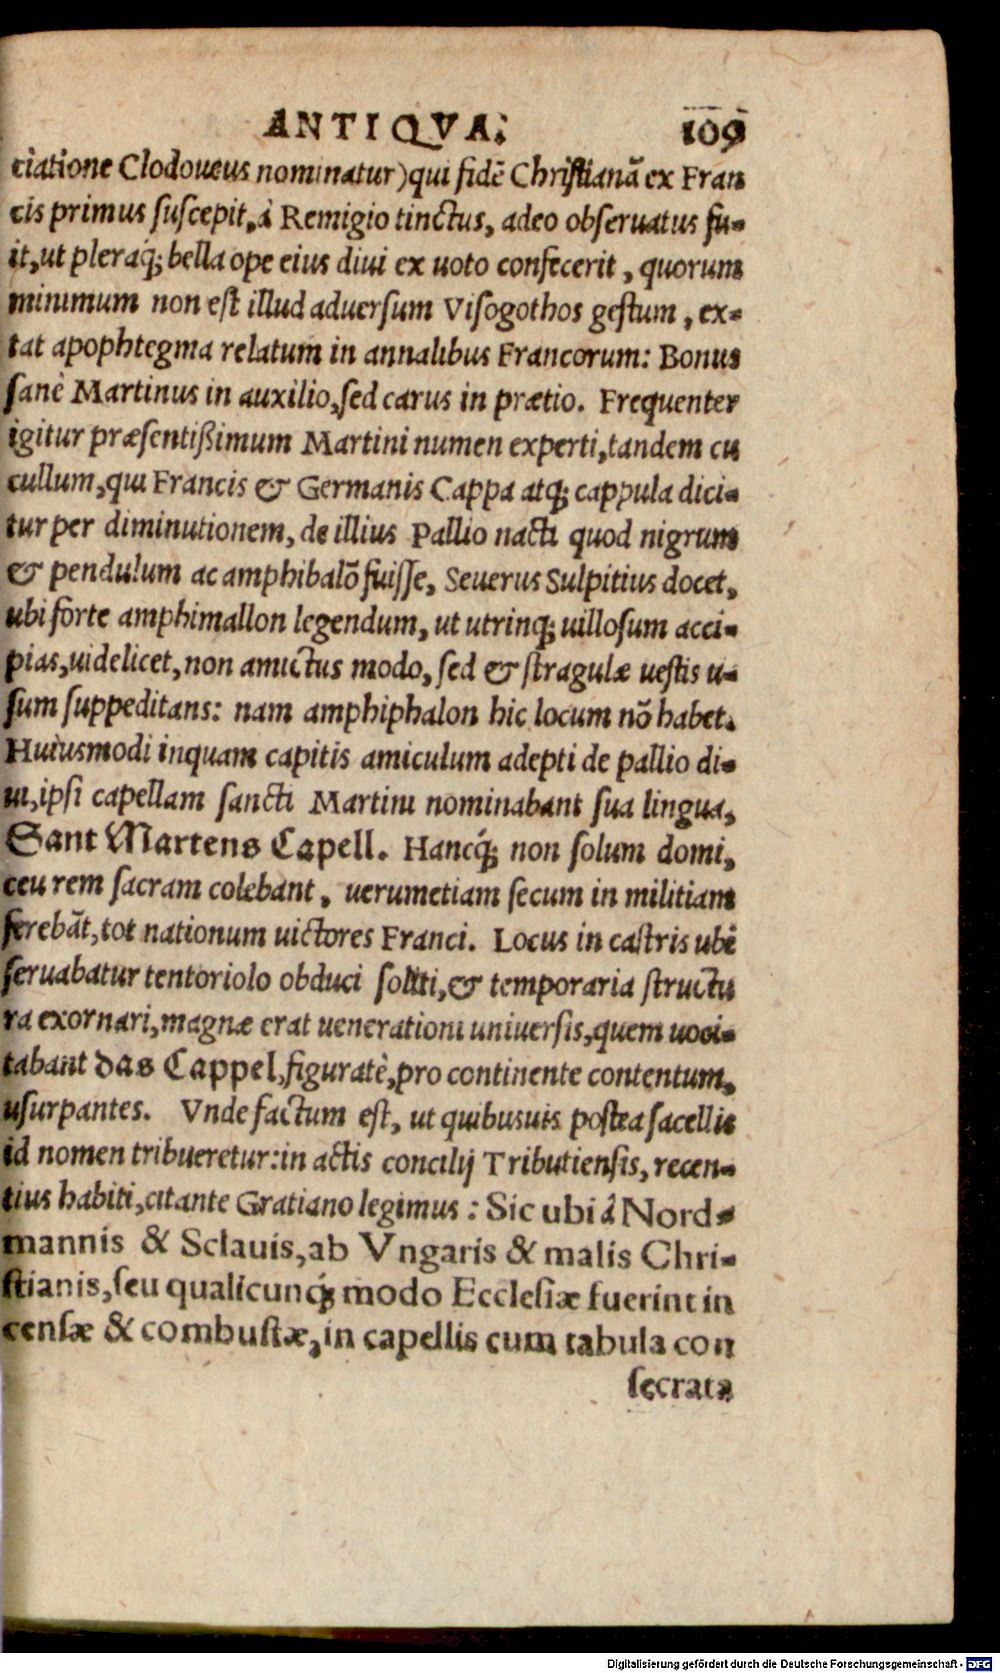 ANTIQVA. 109
ciatione Clodoueus nominatur) qui fidē Christianā ex Fran
cis primus suscepit, à Remigio tinctus, adeo obseruatus fu-
it, ut pleraq́; bella ope eius diui ex uoto confecerit, quorum
minimum non est illud aduersum Visogothos gestum, ex-
tat apophtegma relatum in annalibus Francorum: Bonus
sanè Martinus in auxilio, sed carus in prætio. Frequenter
igitur præsentißimum Martini numen experti, tandem cu
cullum, qui Francis & Germanis Cappa atq; cappula dici-
tur per diminutionem, de illius Pallio nacti quod nigrum
& pendulum ac amphibalō fuisse, Seuerus Sulpitius docet,
ubi forte amphimallon legendum, ut utrinq; uillosum acci-
pias, uidelicet, non amictus modo, sed & stragulæ uestis u-
sum suppeditans: nam amphiphalon hic locum nō habet.
Huiusmodi inquam capitis amiculum adepti de pallio di-
ui, ipsi capellam sancti Martini nominabant sua lingua,
Sant Martens Capell. Hancq́; non solum domi,
ceu rem sacram colebant, uerumetiam secum in militiam
ferebāt, tot nationum uictores Franci. Locus in castris ubi
seruabatur tentoriolo obduci soliti, & temporaria structu
ra exornari, magnæ erat uenerationi uniuersis, quem uoci-
tabant das Cappel, figuratè, pro continente contentum,
usurpantes. Vnde factum est, ut quibusuis postea sacellis
id nomen tribueretur: in actis concilij Tributiensis, recen-
tius habiti, citante Gratiano legimus: Sic ubi á Nord-
mannis & Sclauis, ab Vngaris & malis Chri-
stianis, seu qualicunq́; modo Ecclesiæ fuerint in
censæ & combustæ, in capellis cum tabula con
secrata
Digitalisierung gefördert durch die Deutsche Forschungsgemeinschaft - DFG